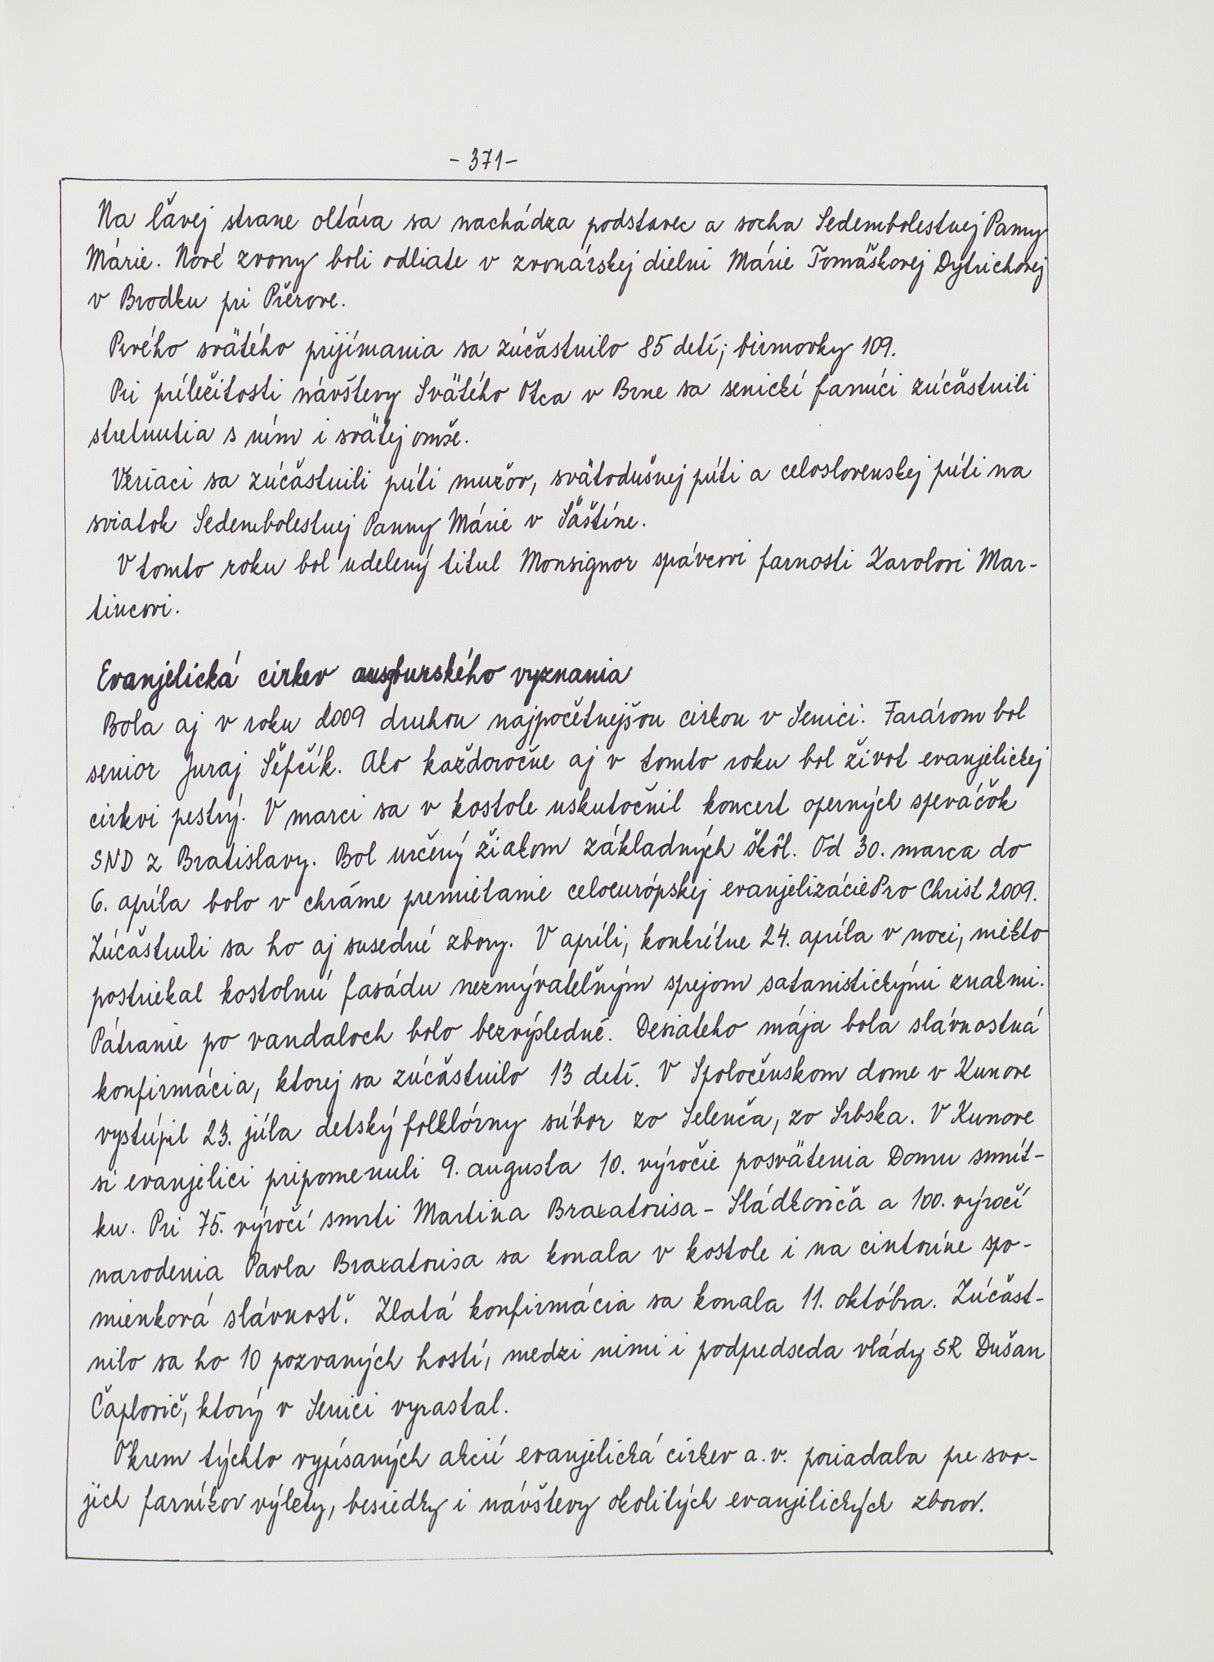 - 371 -
Na ľavej strane oltára sa nachádza podstavec a socha Sedembolestnej Panny
Márie. Nové zvony boli odliate v zvonárskej dielni Márie Tomáškovej Dytrichovej
v Brodku pri Přerove.
Prvého svätého prijímania sa zúčastnilo 85 detí; birmovky 109.
Pri príležitosti návštevy Svätého Otca v Brne sa senickí farníci zúčastnili
stretnutia s ním i svätej omše.
Veriaci sa zúčastnili púti mužov, svätodušnej púti a celoslovenskej púti na
sviatok Sedembolestnej Panny Márie v Šaštíne.
V tomto roku bol udelený titul Monsignor správcovi farnosti Karolovi Mar-
tincovi.
Evanjelická cirkev ausburského vyznania
Bola aj v roku 2009 druhou najpočetnejšou cirkou v Senici. Farárom bol
senior Juraj Šefčík. Ako každoročne aj v tomto roku bol život evanjelickej
cirkvi pestrý. V marci sa v kostole uskutočnil koncert operných speváčok
SND z Bratislavy. Bol určený žiakom základných škôl. Od 30. marca do
6. apríla bolo v chráme premietanie celoeurópskej evanjelizácie Pro Christ 2009.
Zúčastnili sa ho aj susedné zbory. V apríli, konkrétne 24. apríla v noci, niekto
postriekal kostolnú fasádu nezmývateľným sprejom satanistickými znakmi.
Pátranie po vandaloch bolo bezvýsledné. Desiateho mája bola slávnostná
konfirmácia, ktorej sa zúčastnilo 13 detí. V Spoločenskom dome v Kunove
vystúpil 23. júla detský folklórny súbor zo Selenča, zo Srbska. V Kunove
si evanjelici pripomenuli 9. augusta 10. výročie posvätenia Domu smút-
ku. Pri 75. výročí smrti Martina Braxatorisa - Sládkoviča a 100. výročí
narodenia Pavla Braxatorisa sa konala v kostole i na cintoríne spo-
mienková slávnosť. Zlatá konfirmácia sa konala 11. októbra. Zúčast-
nilo sa ho 10 pozvaných hostí, medzi nimi i podpredseda vlády SR Dušan
Čaplovič, ktorý v Senici vyrastal.
Okrem týchto vypísaných akcií evanjelická cirkev a. v. poriadala pre svo-
jich farníkov výlety, besiedky i návštevy okolitých evanjelických zborov.